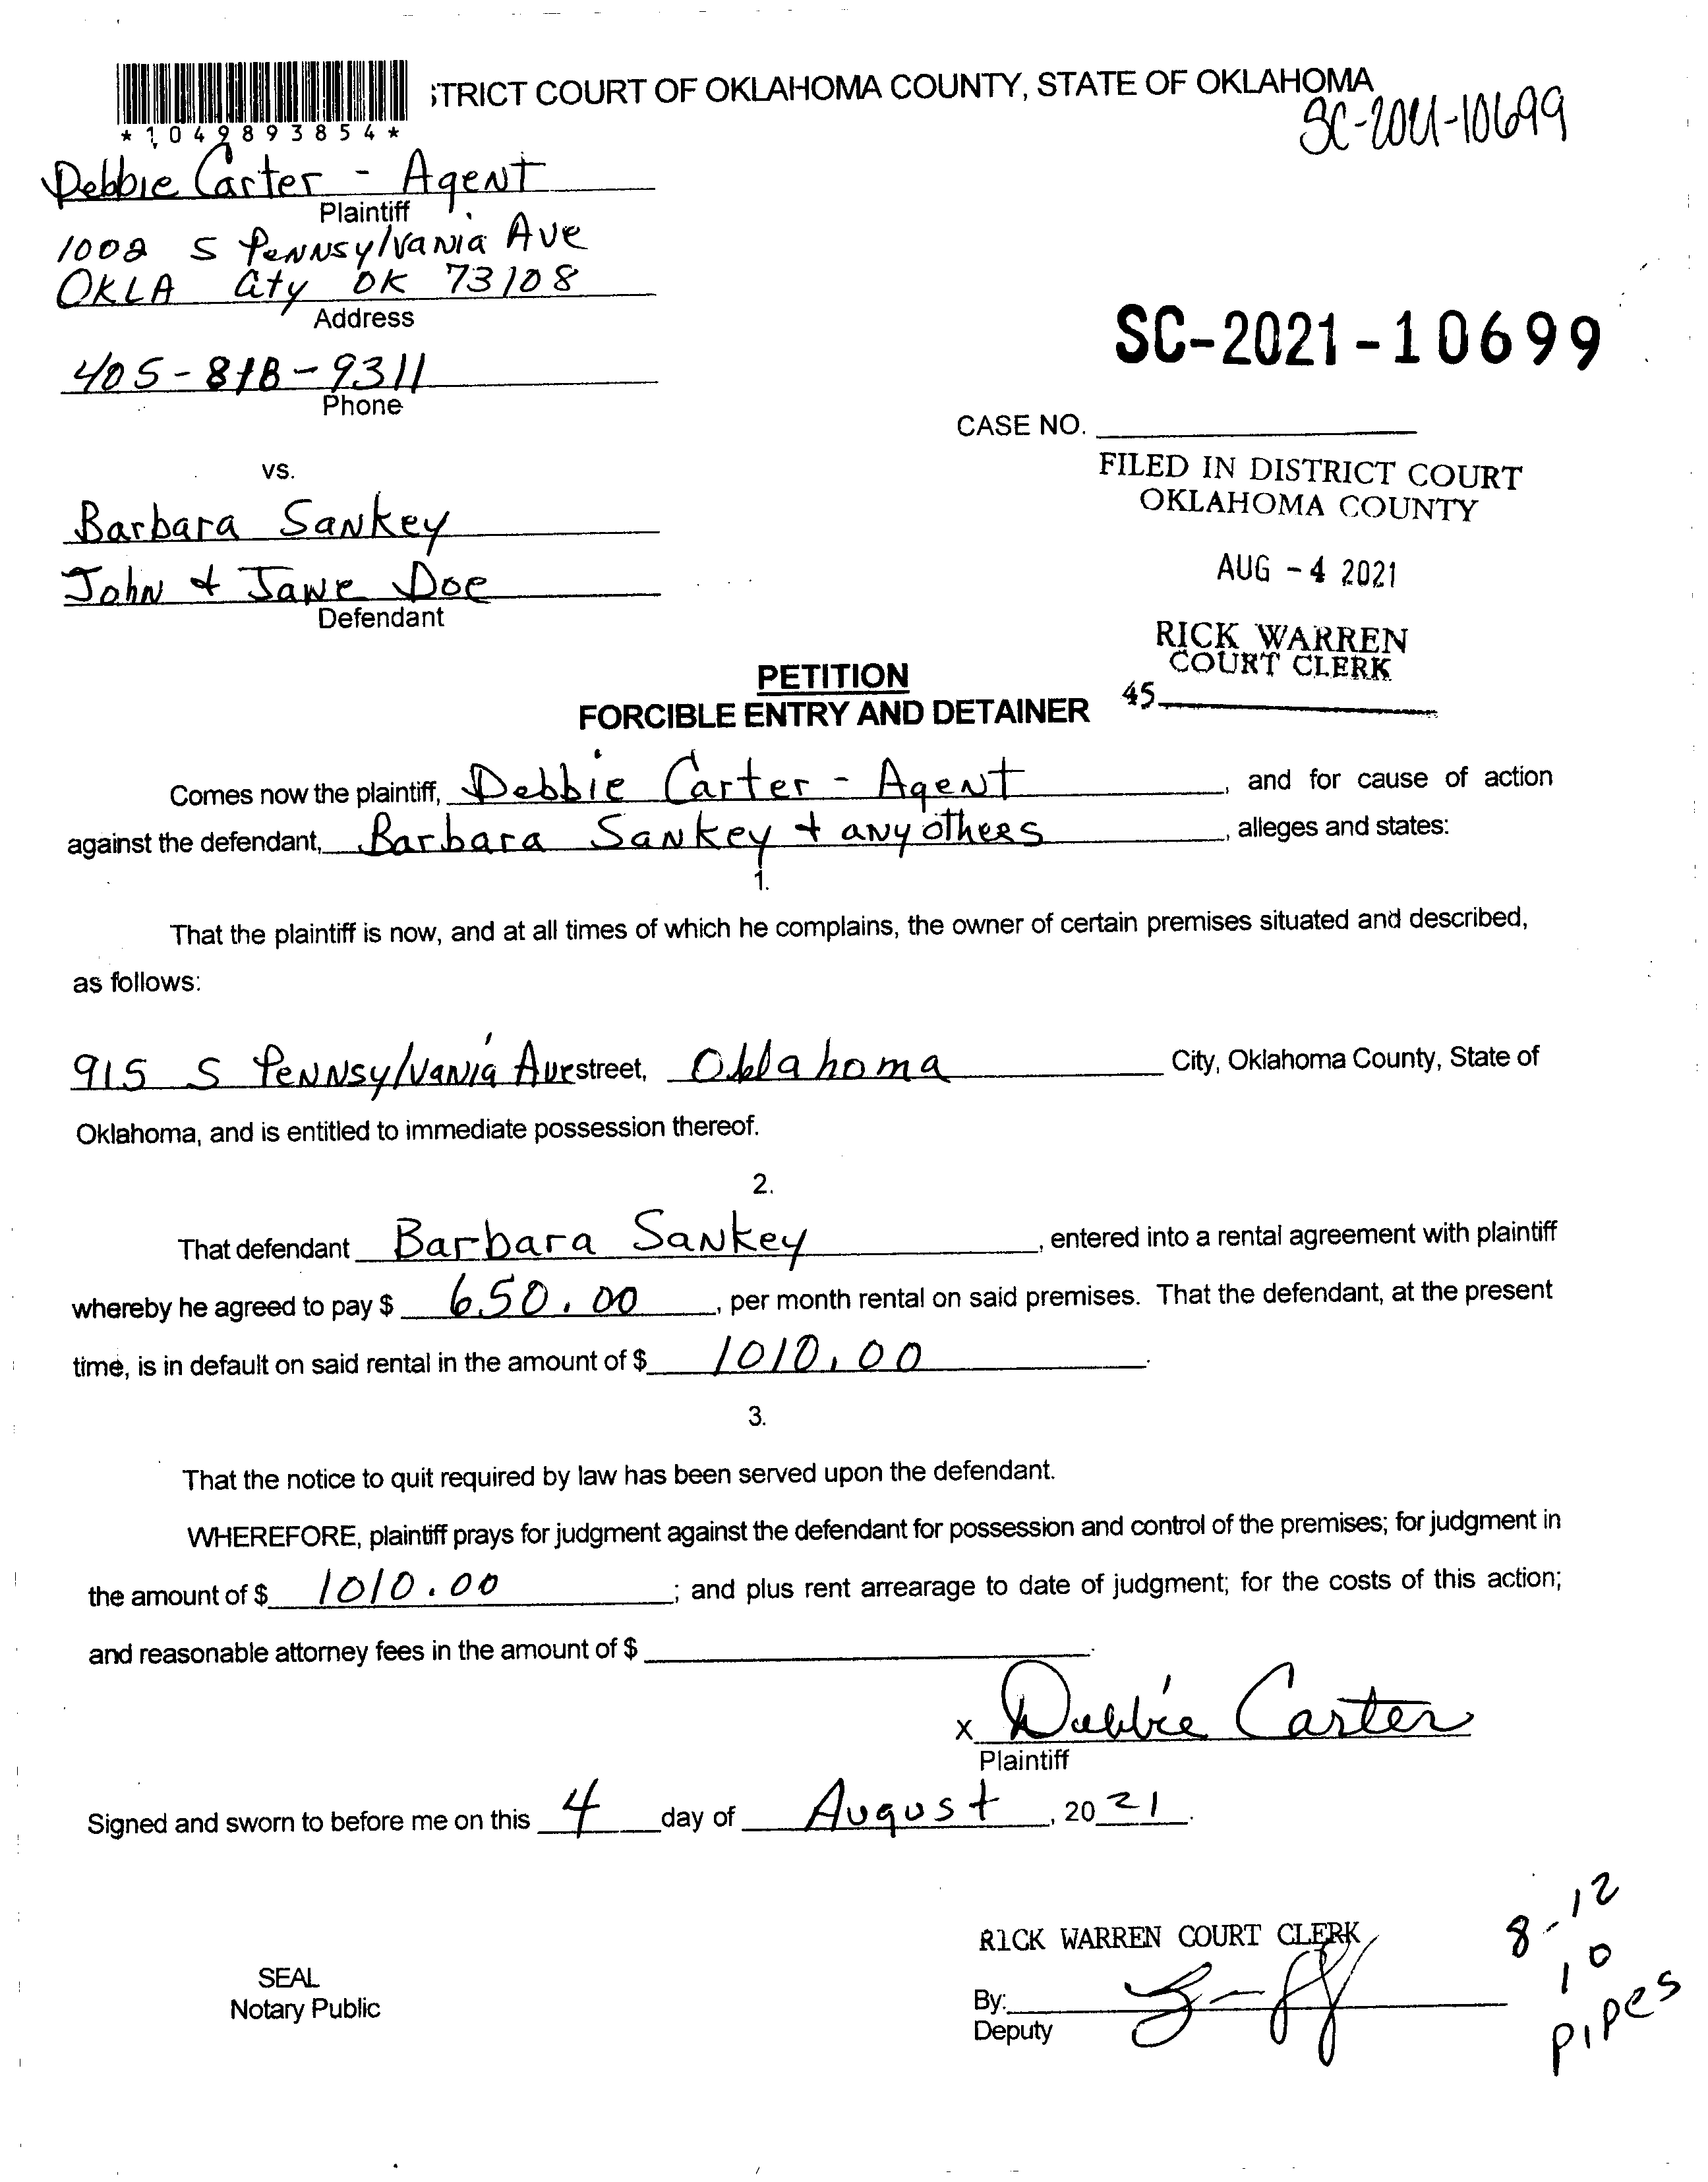 STRICT COURT OF OKLAHOMA COUNTY, STATE OF OKLAHOMA
*1049893854*
SC-2021-10699
Debbie Carter - Agent
Plaintiff
1002 S Pennsylvania Ave
OKLA City OK 73108
Address
SC-2021-10699
405-818-9311
Phone
CASE NO.
vs.
FILED IN DISTRICT COURT
OKLAHOMA COUNTY
Barbara Sankey
AUG -4 2021
John + Jane Doe
Defendant
RICK WARREN
COURT CLERK
45
PETITION
FORCIBLE ENTRY AND DETAINER
Comes now the plaintiff, Debbie Carter - Agent, and for cause of action
against the defendant, Barbara Sankey + any others, alleges and states:
1.
That the plaintiff is now, and at all times of which he complains, the owner of certain premises situated and described,
as follows:
915 S Pennsylvania Ave street, Oklahoma City, Oklahoma County, State of
Oklahoma, and is entitled to immediate possession thereof.
2.
That defendant Barbara Sankey, entered into a rental agreement with plaintiff
whereby he agreed to pay $ 650.00, per month rental on said premises. That the defendant, at the present
time, is in default on said rental in the amount of $ 1010.00.
3.
That the notice to quit required by law has been served upon the defendant.
WHEREFORE, plaintiff prays for judgment against the defendant for possession and control of the premises; for judgment in
the amount of $ 1010.00; and plus rent arrearage to date of judgment; for the costs of this action;
and reasonable attorney fees in the amount of $ .
x Debbie Carter
Plaintiff
Signed and sworn to before me on this 4 day of August, 20 21.
8-12
10
pipes
RICK WARREN COURT CLERK
SEAL
Notary Public
By:
Deputy